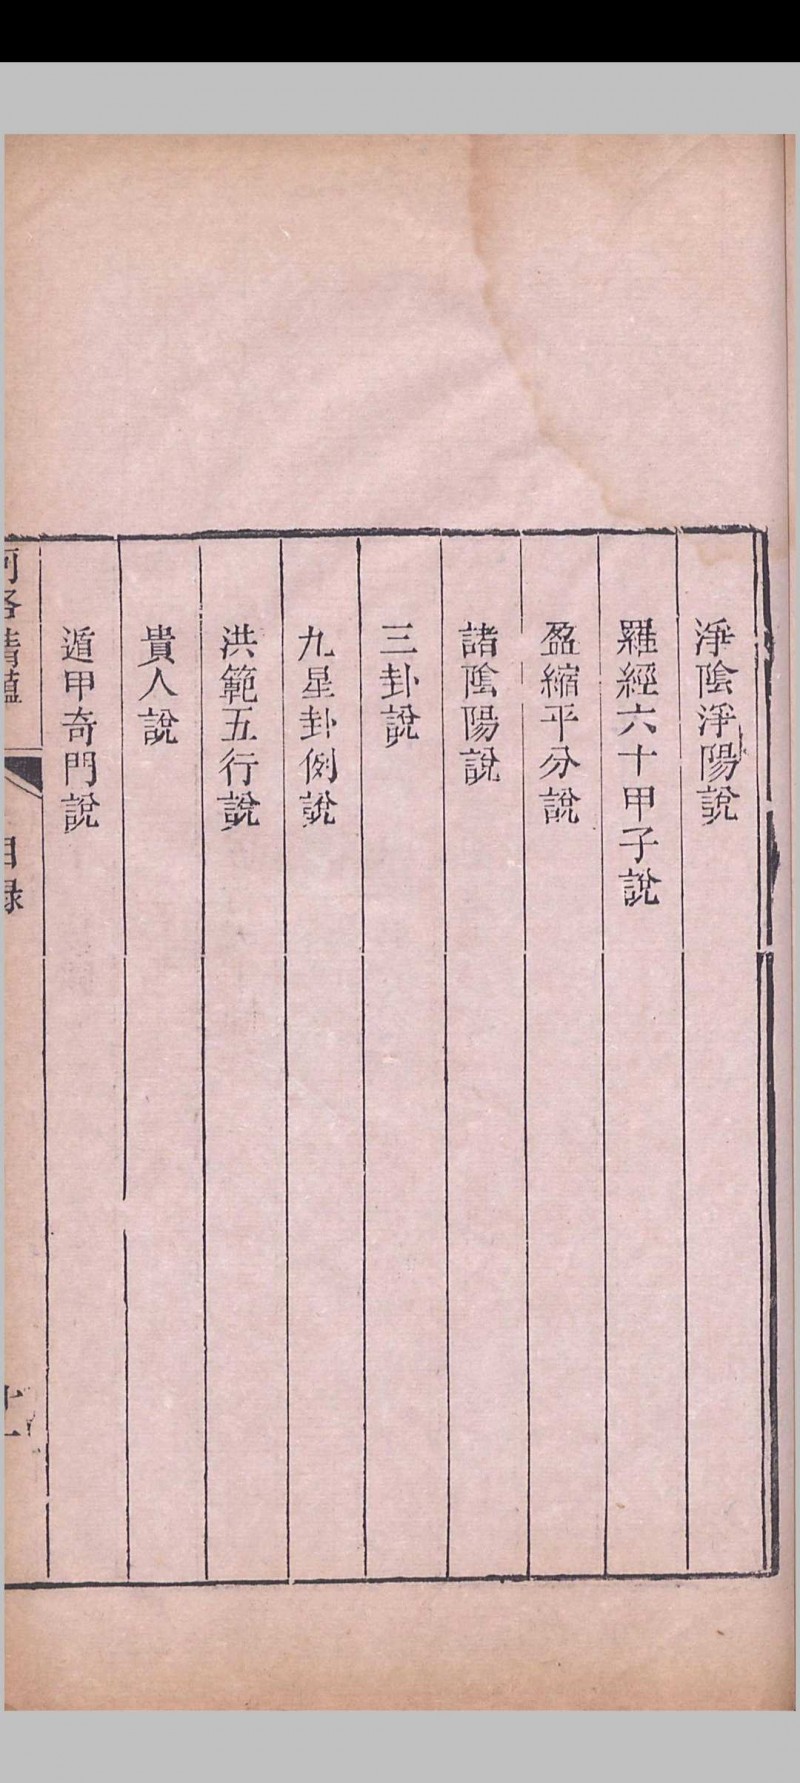 淨陰淨陽說
羅經六十甲子說
盈縮平分說
諸陰陽說
三卦說
九星卦例說
洪範五行說
貴人說
遁甲奇門說
河洛精蘊
目錄